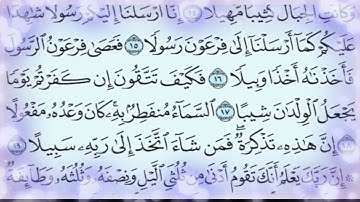 وَكَانَتِ ٱلْجِبَالُ كَثِيبًا مَّهِيلًا ١٤ إِنَّآ أَرْسَلْنَآ إِلَيْكُمْ رَسُولًا شَٰهِدًا
عَلَيْكُمْ كَمَآ أَرْسَلْنَآ إِلَىٰ فِرْعَوْنَ رَسُولًا ١٥ فَعَصَىٰ فِرْعَوْنُ ٱلرَّسُولَ
فَأَخَذْنَٰهُ أَخْذًا وَبِيلًا ١٦ فَكَيْفَ تَتَّقُونَ إِن كَفَرْتُمْ يَوْمًا
يَجْعَلُ ٱلْوِلْدَٰنَ شِيبًا ١٧ ٱلسَّمَآءُ مُنفَطِرٌۢ بِهِۦ ۚ كَانَ وَعْدُهُۥ مَفْعُولًا ١٨
إِنَّ هَٰذِهِۦ تَذْكِرَةٌ ۖ فَمَن شَآءَ ٱتَّخَذَ إِلَىٰ رَبِّهِۦ سَبِيلًا ١٩
۞ إِنَّ رَبَّكَ يَعْلَمُ أَنَّكَ تَقُومُ أَدْنَىٰ مِن ثُلُثَىِ ٱلَّيْلِ وَنِصْفَهُۥ وَثُلُثَهُۥ وَطَآئِفَةٌ